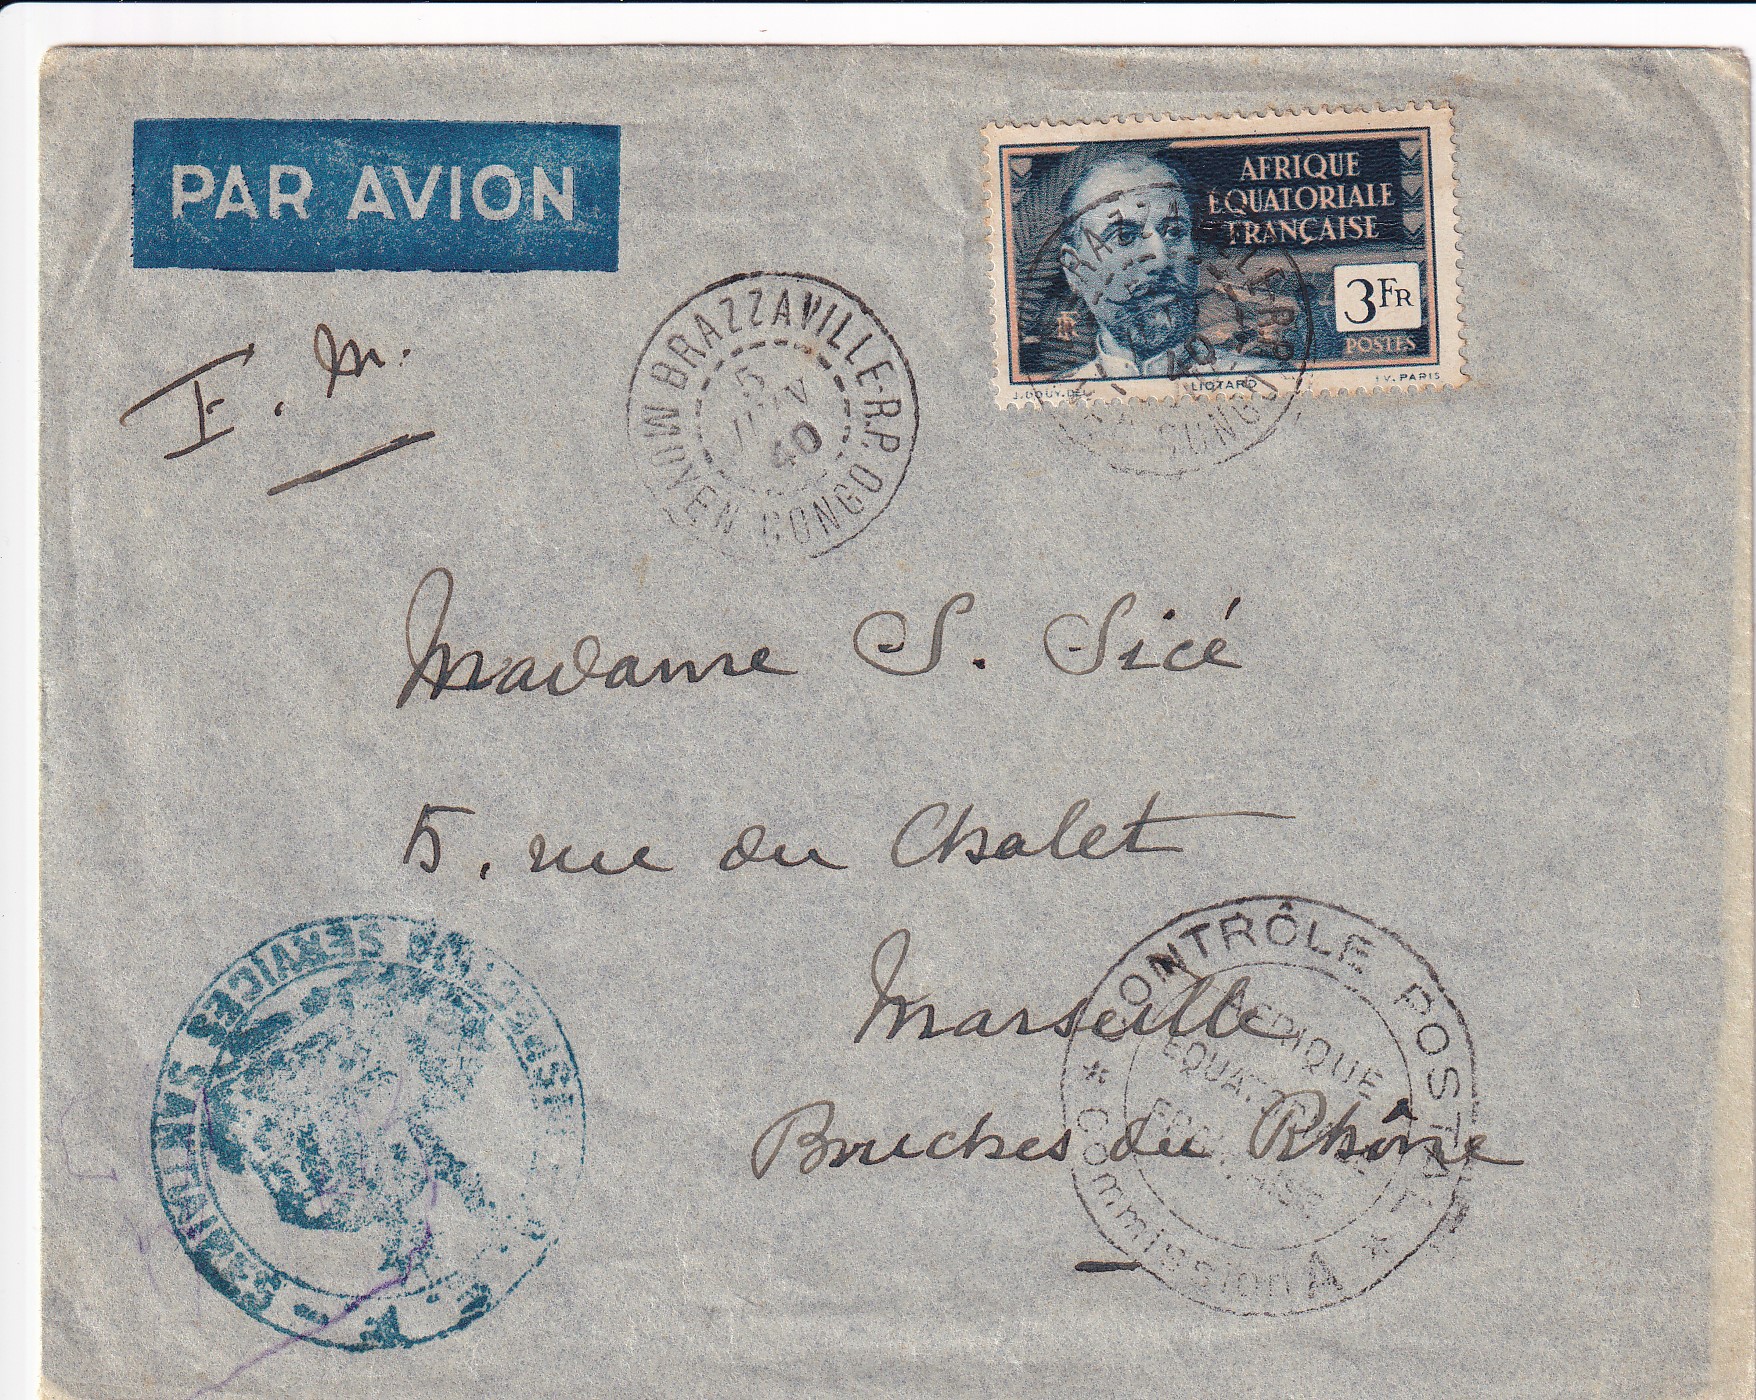 PAR AVION
AFRIQUE
ÉQUATORIALE
FRANÇAISE
3FR
POSTES
RF
J.DOUY.DEL.
LIOTARD
V. PARIS
F. M.
BRAZZAVILLE-R.P.
5
JUIN
40
MOYEN CONGO
BRAZZAVILLE-R.P.
40
CONGO
Madame S. Sicé
5, rue du Chalet
Marseille
Bouches du Rhône
CONTRÔLE POSTAL
AFRIQUE
ÉQUATORIALE
FRANÇAISE
* Commission A *
SERVICES SANITAIRES